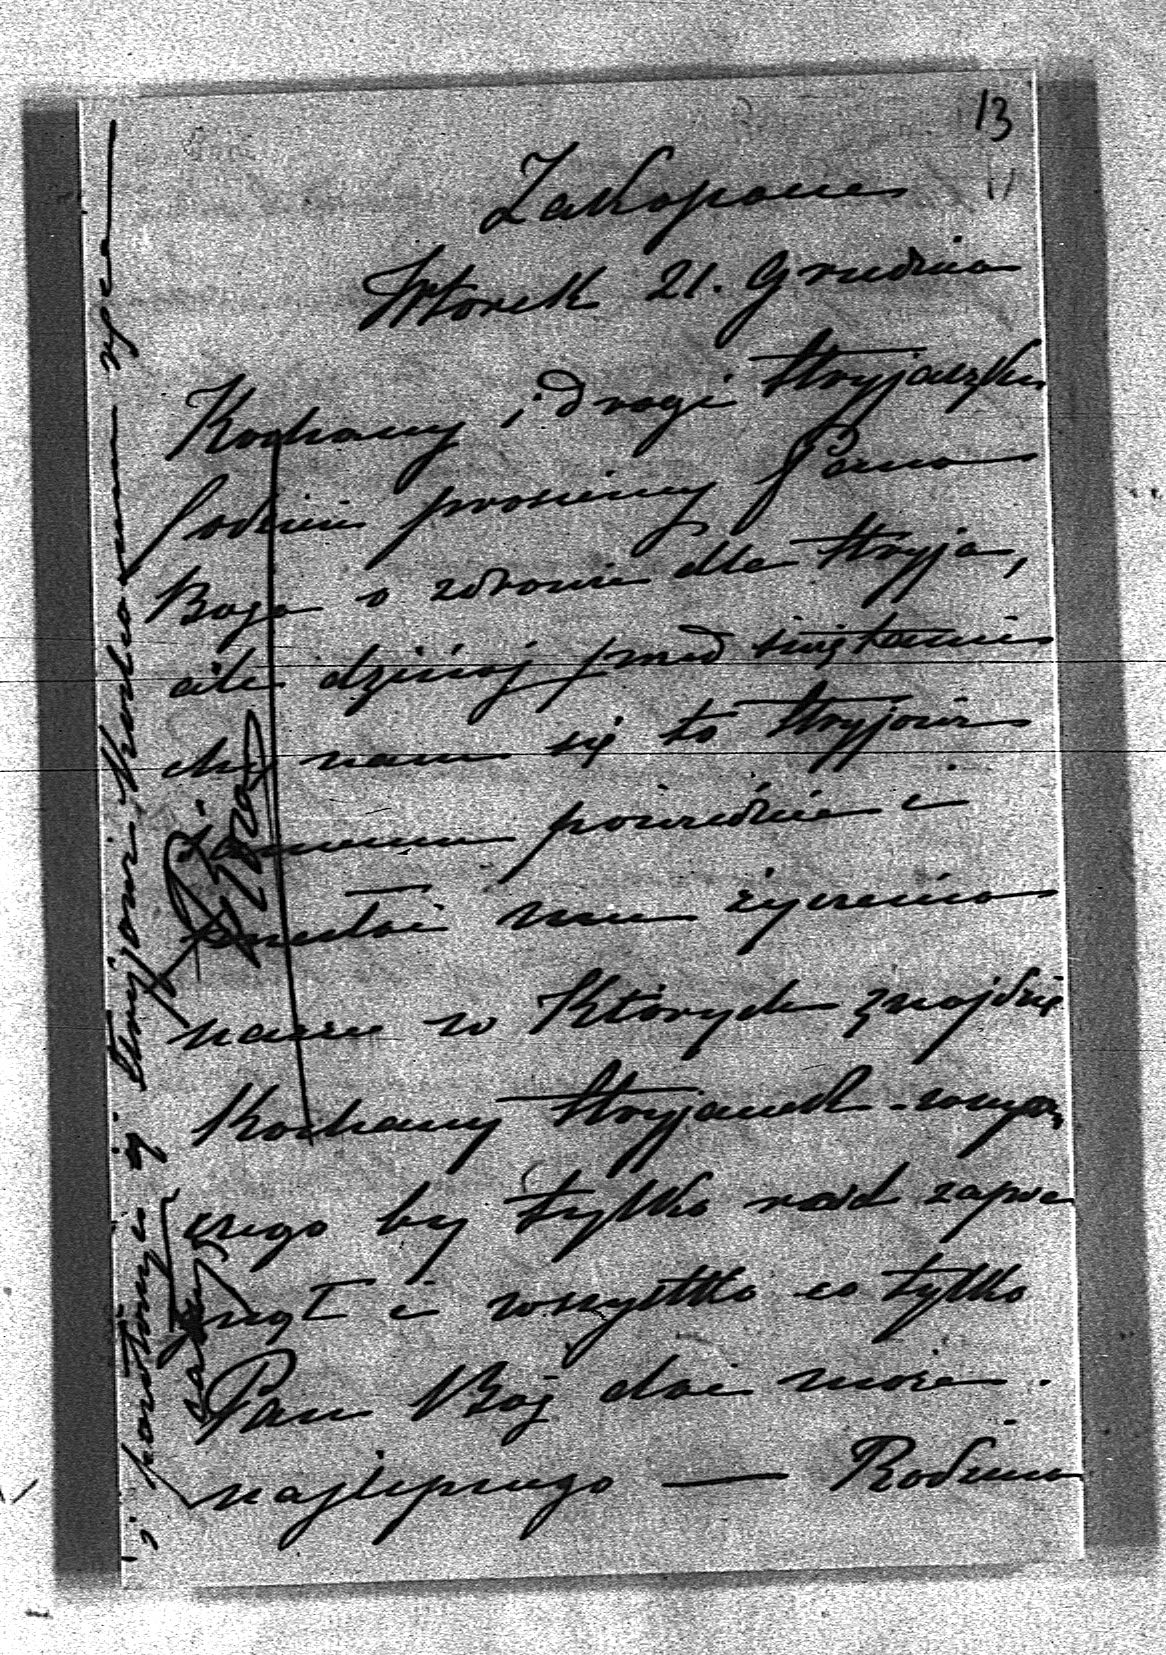 13
Zakopane
Wtorek 21. Grudnia
Kochany i drogi Stryjaszku
Codzień prosimy Pana
Boga o zdrowie dla Stryja,
ale dzisiaj przed świętami
chce nam się to Stryjowi
samemu powiedzieć i
przesłać mu życzenia
nasze w których znajdzie
Kochany Stryjaszek wszys
czego by tylko rad zaprag
nął i wszystko co tylko
Pan Bóg dać może
najlepszego — Rodzina